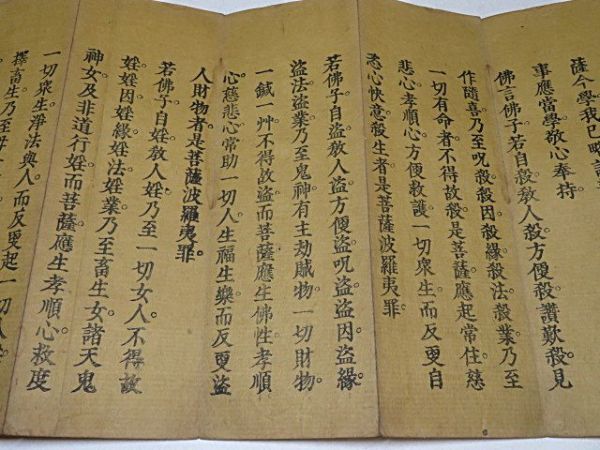 薩今學我已略
事應當學敬心奉持。
佛言佛子。若自殺。教人殺。方便殺。讚歎殺。見
作隨喜。乃至呪殺。殺因。殺緣。殺法。殺業。乃至
一切有命者。不得故殺。是菩薩。應起常住慈
悲心。孝順心。方便救護。一切衆生。而反更自
恣心快意殺生者。是菩薩波羅夷罪。
若佛子。自盜。教人盜。方便盜。呪盜。盜因。盜緣。
盜法。盜業。乃至鬼神有主劫賊物。一切財物。
一鍼一艸。不得故盜。而菩薩。應生佛性孝順
心。慈悲心。常助一切人。生福生樂。而反更盜
人財物者。是菩薩波羅夷罪。
若佛子。自婬。教人婬。乃至一切女人。不得故
婬。婬因。婬緣。婬法。婬業。乃至畜生女。諸天鬼
神女。及非道行婬。而菩薩。應生孝順心。救度
一切衆生。淨法與人。而反更起一切人
擇畜生。乃至